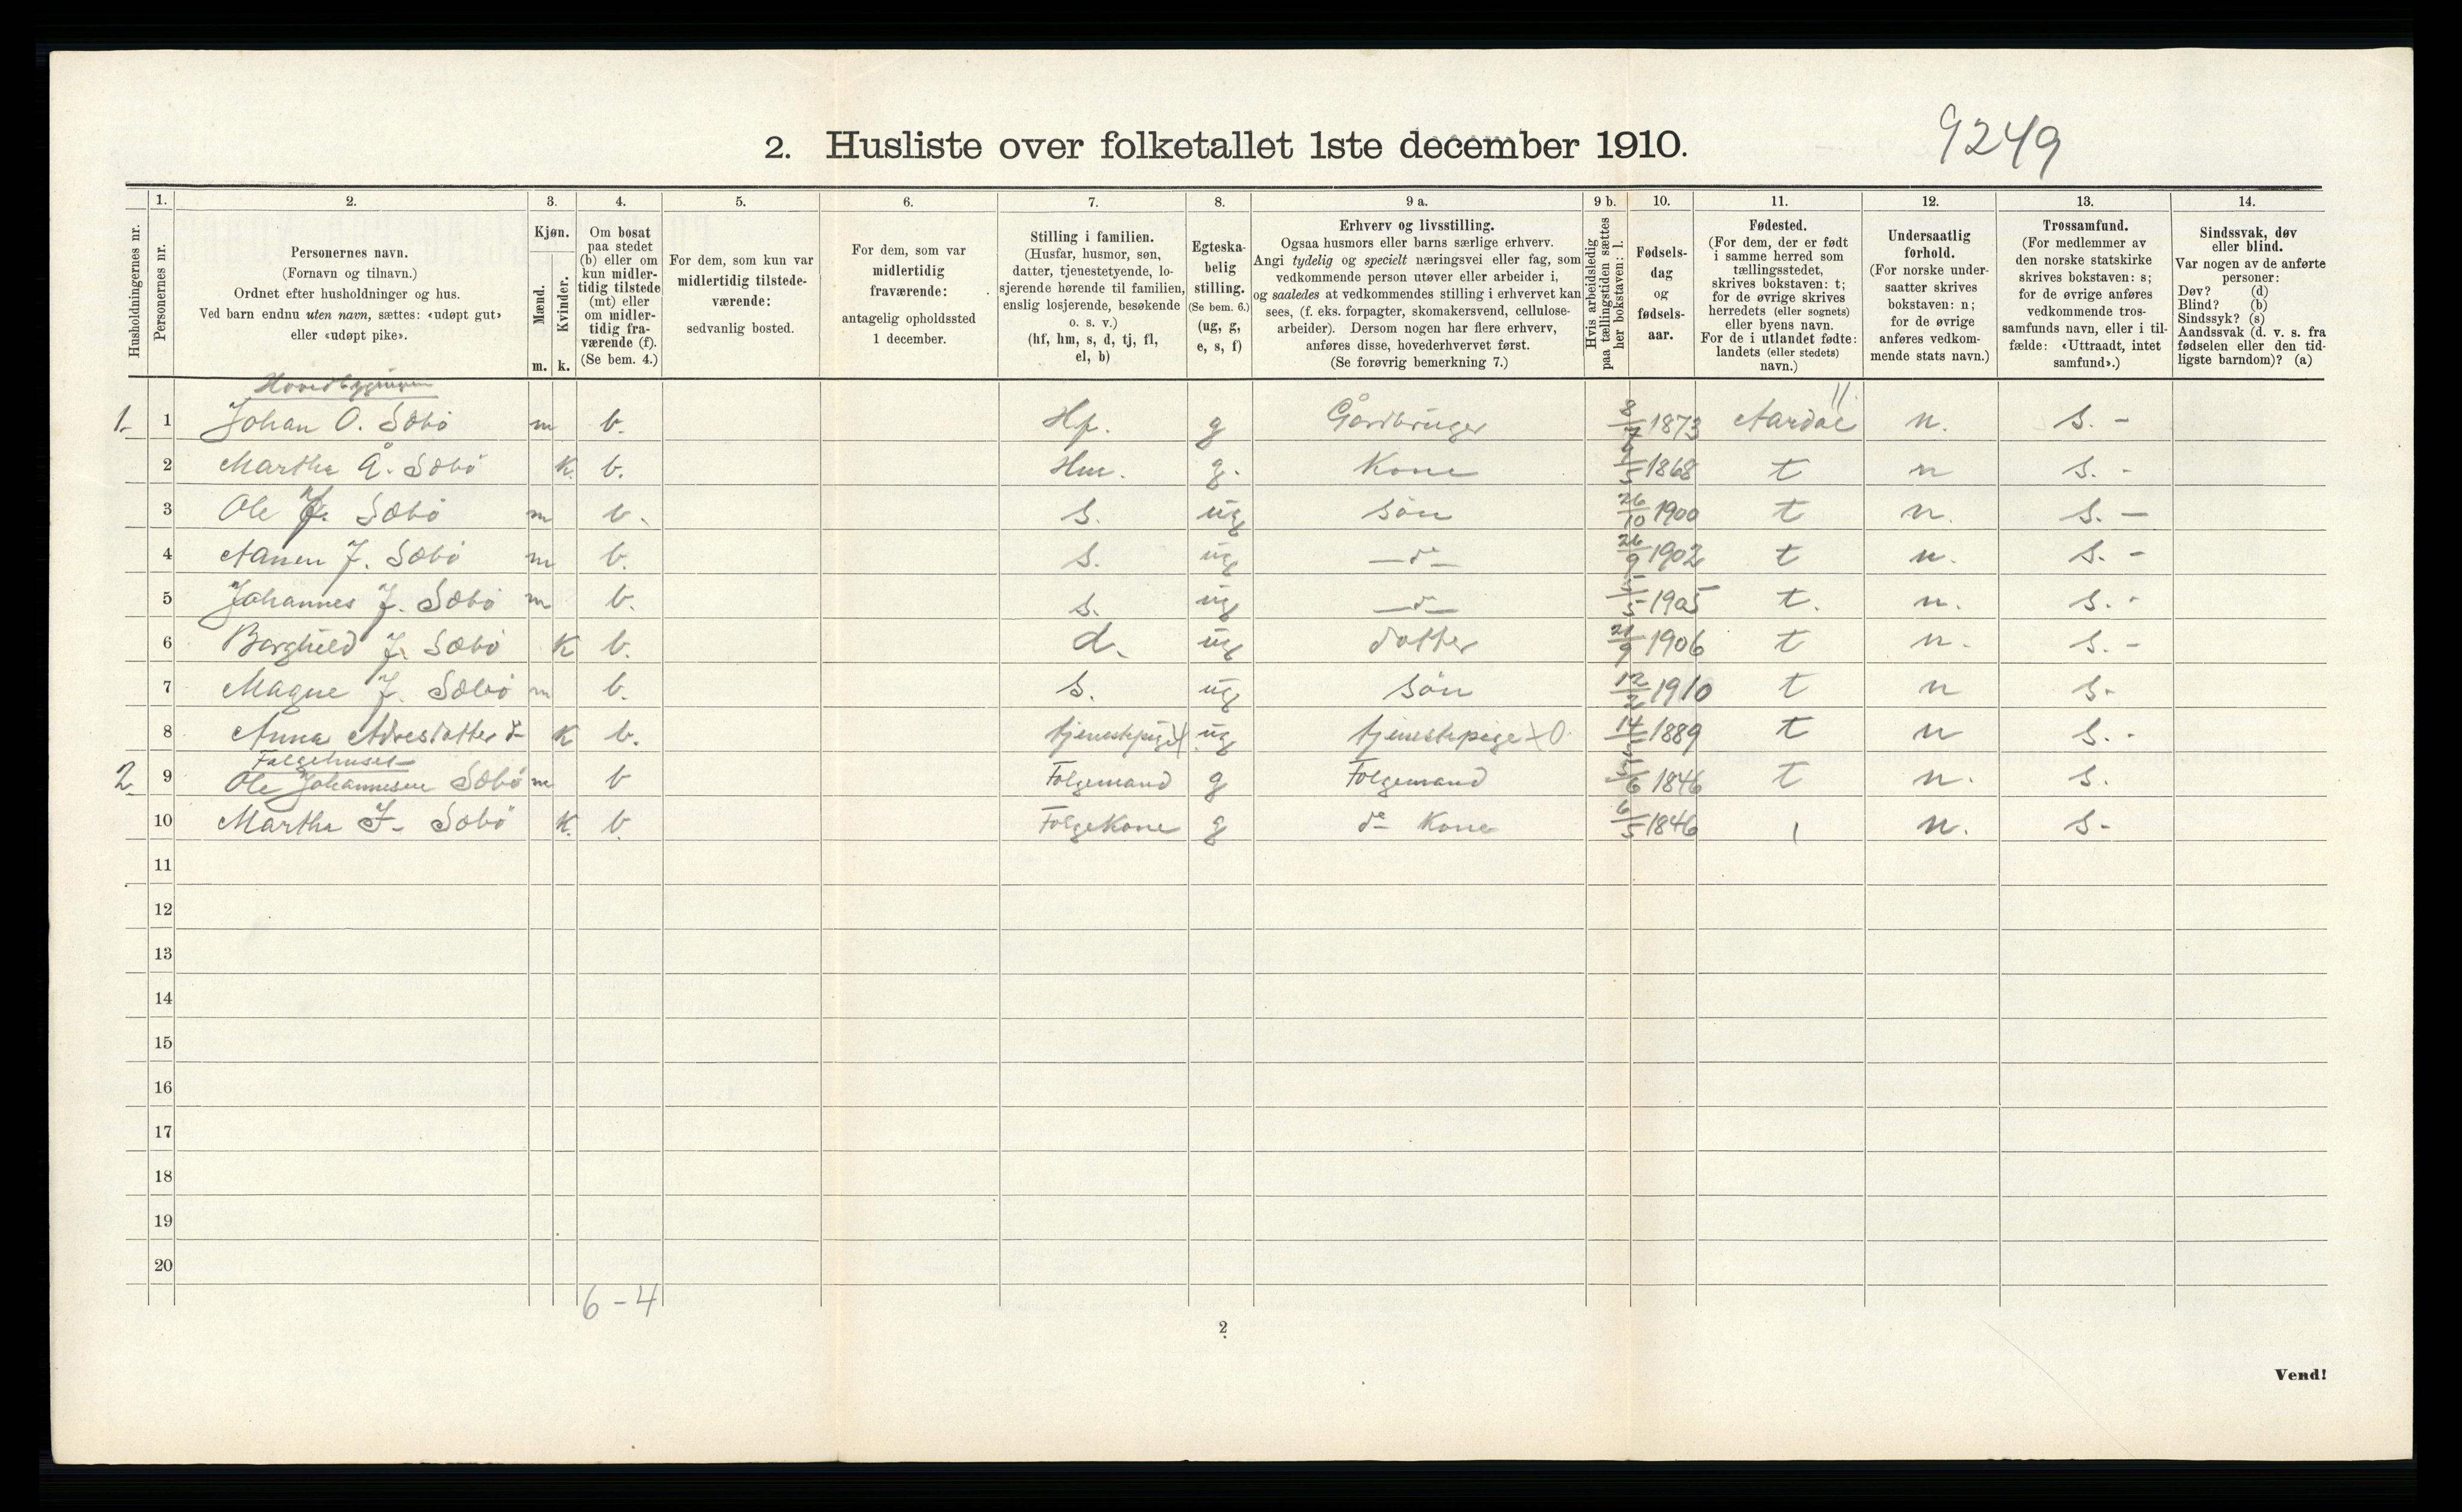 2. Husliste over folketallet 1ste december 1910.
9249
1. 2. 3. 4. 5. 6. 7. 8. 9 a. 9 b. 10. 11. 12. 13. 14.
Husholdningernes nr.
Personernes nr.
Personernes navn.
(Fornavn og tilnavn.)
Ordnet efter husholdninger og hus.
Ved barn endnu uten navn, sættes: «udøpt gut»
eller «udøpt pike».
Kjøn.
Mænd.
Kvinder.
m. k.
Om bosat
paa stedet
(b) eller om
kun midler-
tidig tilstede
(mt) eller
om midler-
tidig fra-
værende (f).
(Se bem. 4.)
For dem, som kun var
midlertidig tilstede-
værende:
sedvanlig bosted.
For dem, som var
midlertidig
fraværende:
antagelig opholdssted
1 december.
Stilling i familien.
(Husfar, husmor, søn,
datter, tjenestetyende, lo-
sjerende hørende til familien,
enslig losjerende, besøkende
o. s. v.)
(hf, hm, s, d, tj, fl,
el, b)
Egteska-
belig
stilling.
(Se bem. 6.)
(ug, g,
e, s, f)
Erhverv og livsstilling.
Ogsaa husmors eller barns særlige erhverv.
Angi tydelig og specielt næringsvei eller fag, som
vedkommende person utøver eller arbeider i,
og saaledes at vedkommendes stilling i erhvervet kan
sees, (f. eks. forpagter, skomakersvend, cellulose-
arbeider). Dersom nogen har flere erhverv,
anføres disse, hovederhvervet først.
(Se forøvrig bemerkning 7.)
Hvis arbeidsledig
paa tællingstiden sættes
her bokstaven: l.
Fødsels-
dag
og
fødsels-
aar.
Fødested.
(For dem, der er født
i samme herred som
tællingsstedet,
skrives bokstaven: t;
for de øvrige skrives
herredets (eller sognets)
eller byens navn.
For de i utlandet fødte:
landets (eller stedets)
navn.)
Undersaatlig
forhold.
(For norske under-
saatter skrives
bokstaven: n;
for de øvrige
anføres vedkom-
mende stats navn.)
Trossamfund.
(For medlemmer av
den norske statskirke
skrives bokstaven: s;
for de øvrige anføres
vedkommende tros-
samfunds navn, eller i til-
fælde: «Uttraadt, intet
samfund».)
Sindssvak, døv
eller blind.
Var nogen av de anførte
personer:
Døv? (d)
Blind? (b)
Sindssyk? (s)
Aandssvak (d. v. s. fra
fødselen eller den tid-
ligste barndom)? (a)
1. 1 Johan O. Sæbö m b. Hf. g Gårdbruger 8/7 1873 Aardal n. s. -
2 Martha Å. Sæbö k b. Hm. g. Kone 1868 t n s. -
3 Ole J. Sæbö m b. s. ug Sön 26/10 1900 t n. s. -
4 Aanen J. Sæbö m b. s. ug - do - 26/9 1902 t n. s. -
5 Johannes J. Sæbö m b. s. ug - d - 5/5 1905 t. n. s. -
6 Borghild J. Sæbö K b. d. ug dotter 21/9 1906 t n. s. -
7 Magne J. Sæbö m b. s. ug Sön 12/2 1910 t n s-
8 Anna K b. tjenestepige ug tjenestepige 0 1889 t n s. -
Folgehuset
2 9 Ole Johannesen Sæbö m b Folgemand g Folgemand 1846 t n. s.
10 Martha J. Sæbö K. b Folgekone g do Kone 6/5 1846 n. s-
11
12
13
14
15
16
17
18
19
20
6 - 4
2
Vend!